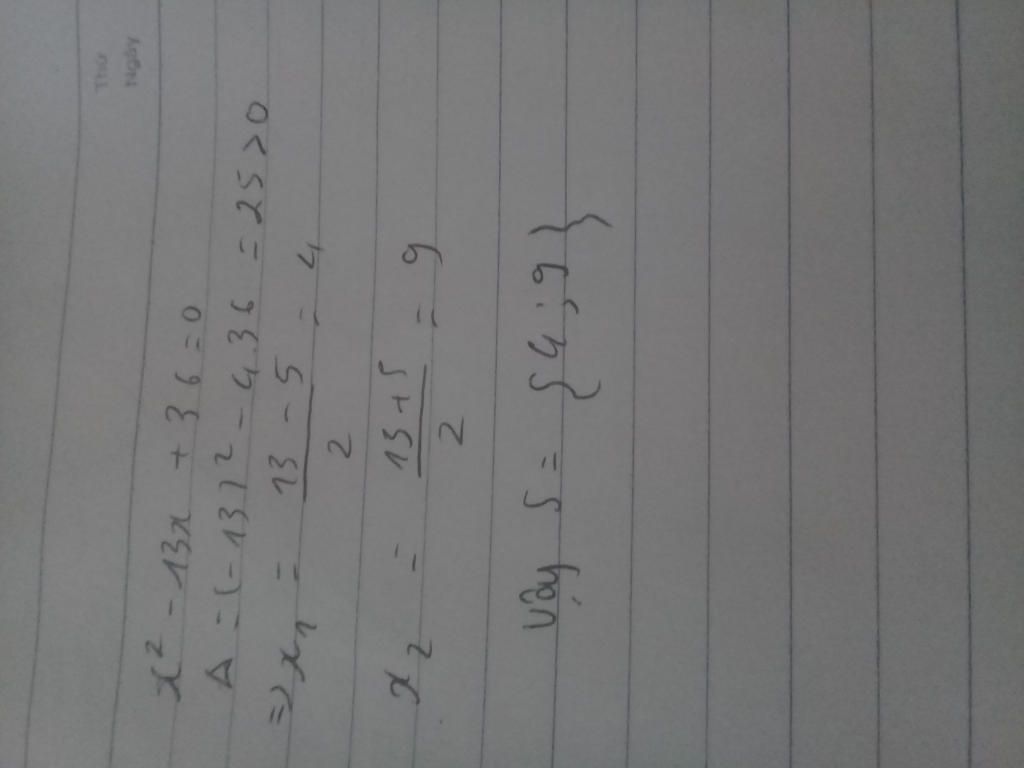 Thứ
Ngày
x² - 13x + 36 = 0
Δ = (-13)² - 4.36 = 25 > 0
=> x₁ = (13 - 5)/2 = 4
x₂ = (13 + 5)/2 = 9
Vậy S = {4; 9}